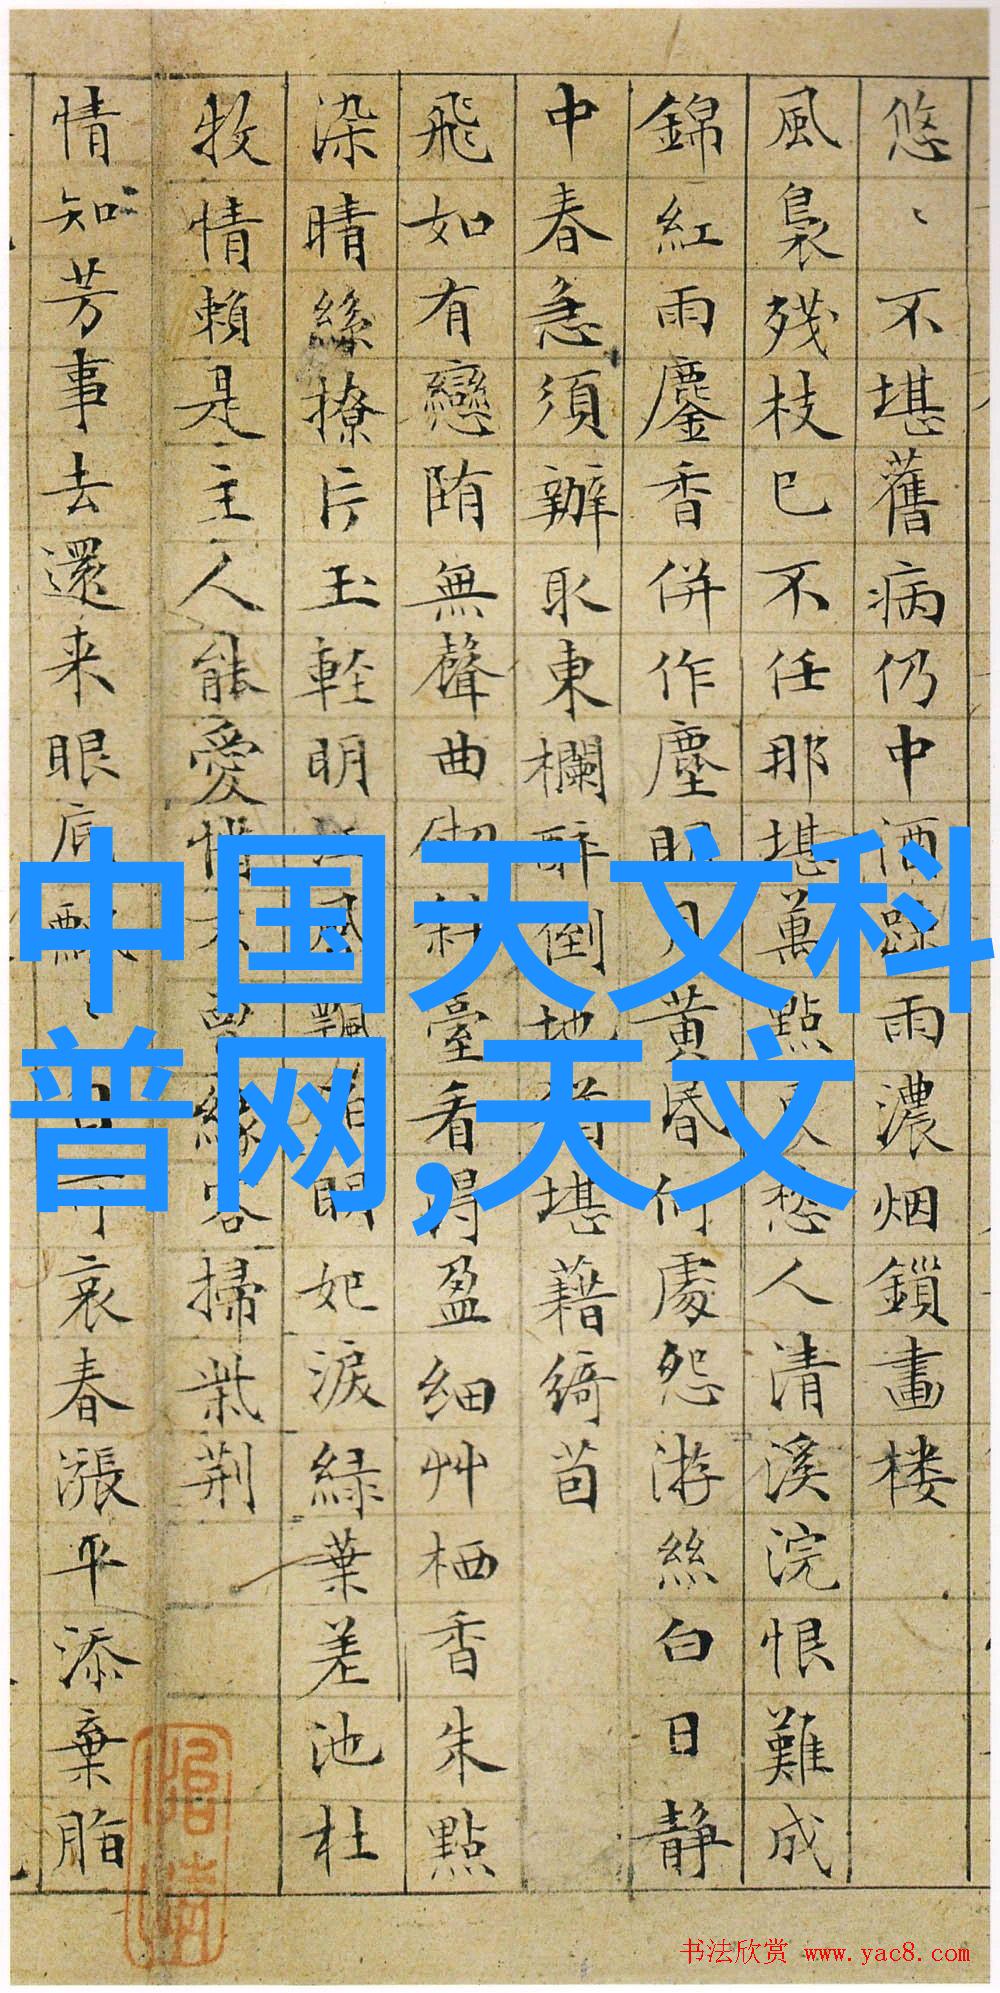 悠〻不堪舊病仍中酒踈雨濃烟鎖畫楼
風裊残枝已不任那堪萬點愁人清溪浣恨難成
錦紅雨鏖香併作塵明月黄昏何處怨游絲白日静
中春急須辦取東欄醉倒地猶堪藉綺茵
飛如有戀墮無聲曲砌斜臺看得盈細艸栖香朱點
染晴絲撩片玉輕明江風飄泊明妃淚緑葉差池杜
牧情賴是主人能愛惜不緣客掃紫荆
情知芳事去還来眼底飄〻自可哀春漲平添棄脂
中国天文科
普网,天文
书法欣赏 www.yac8.com